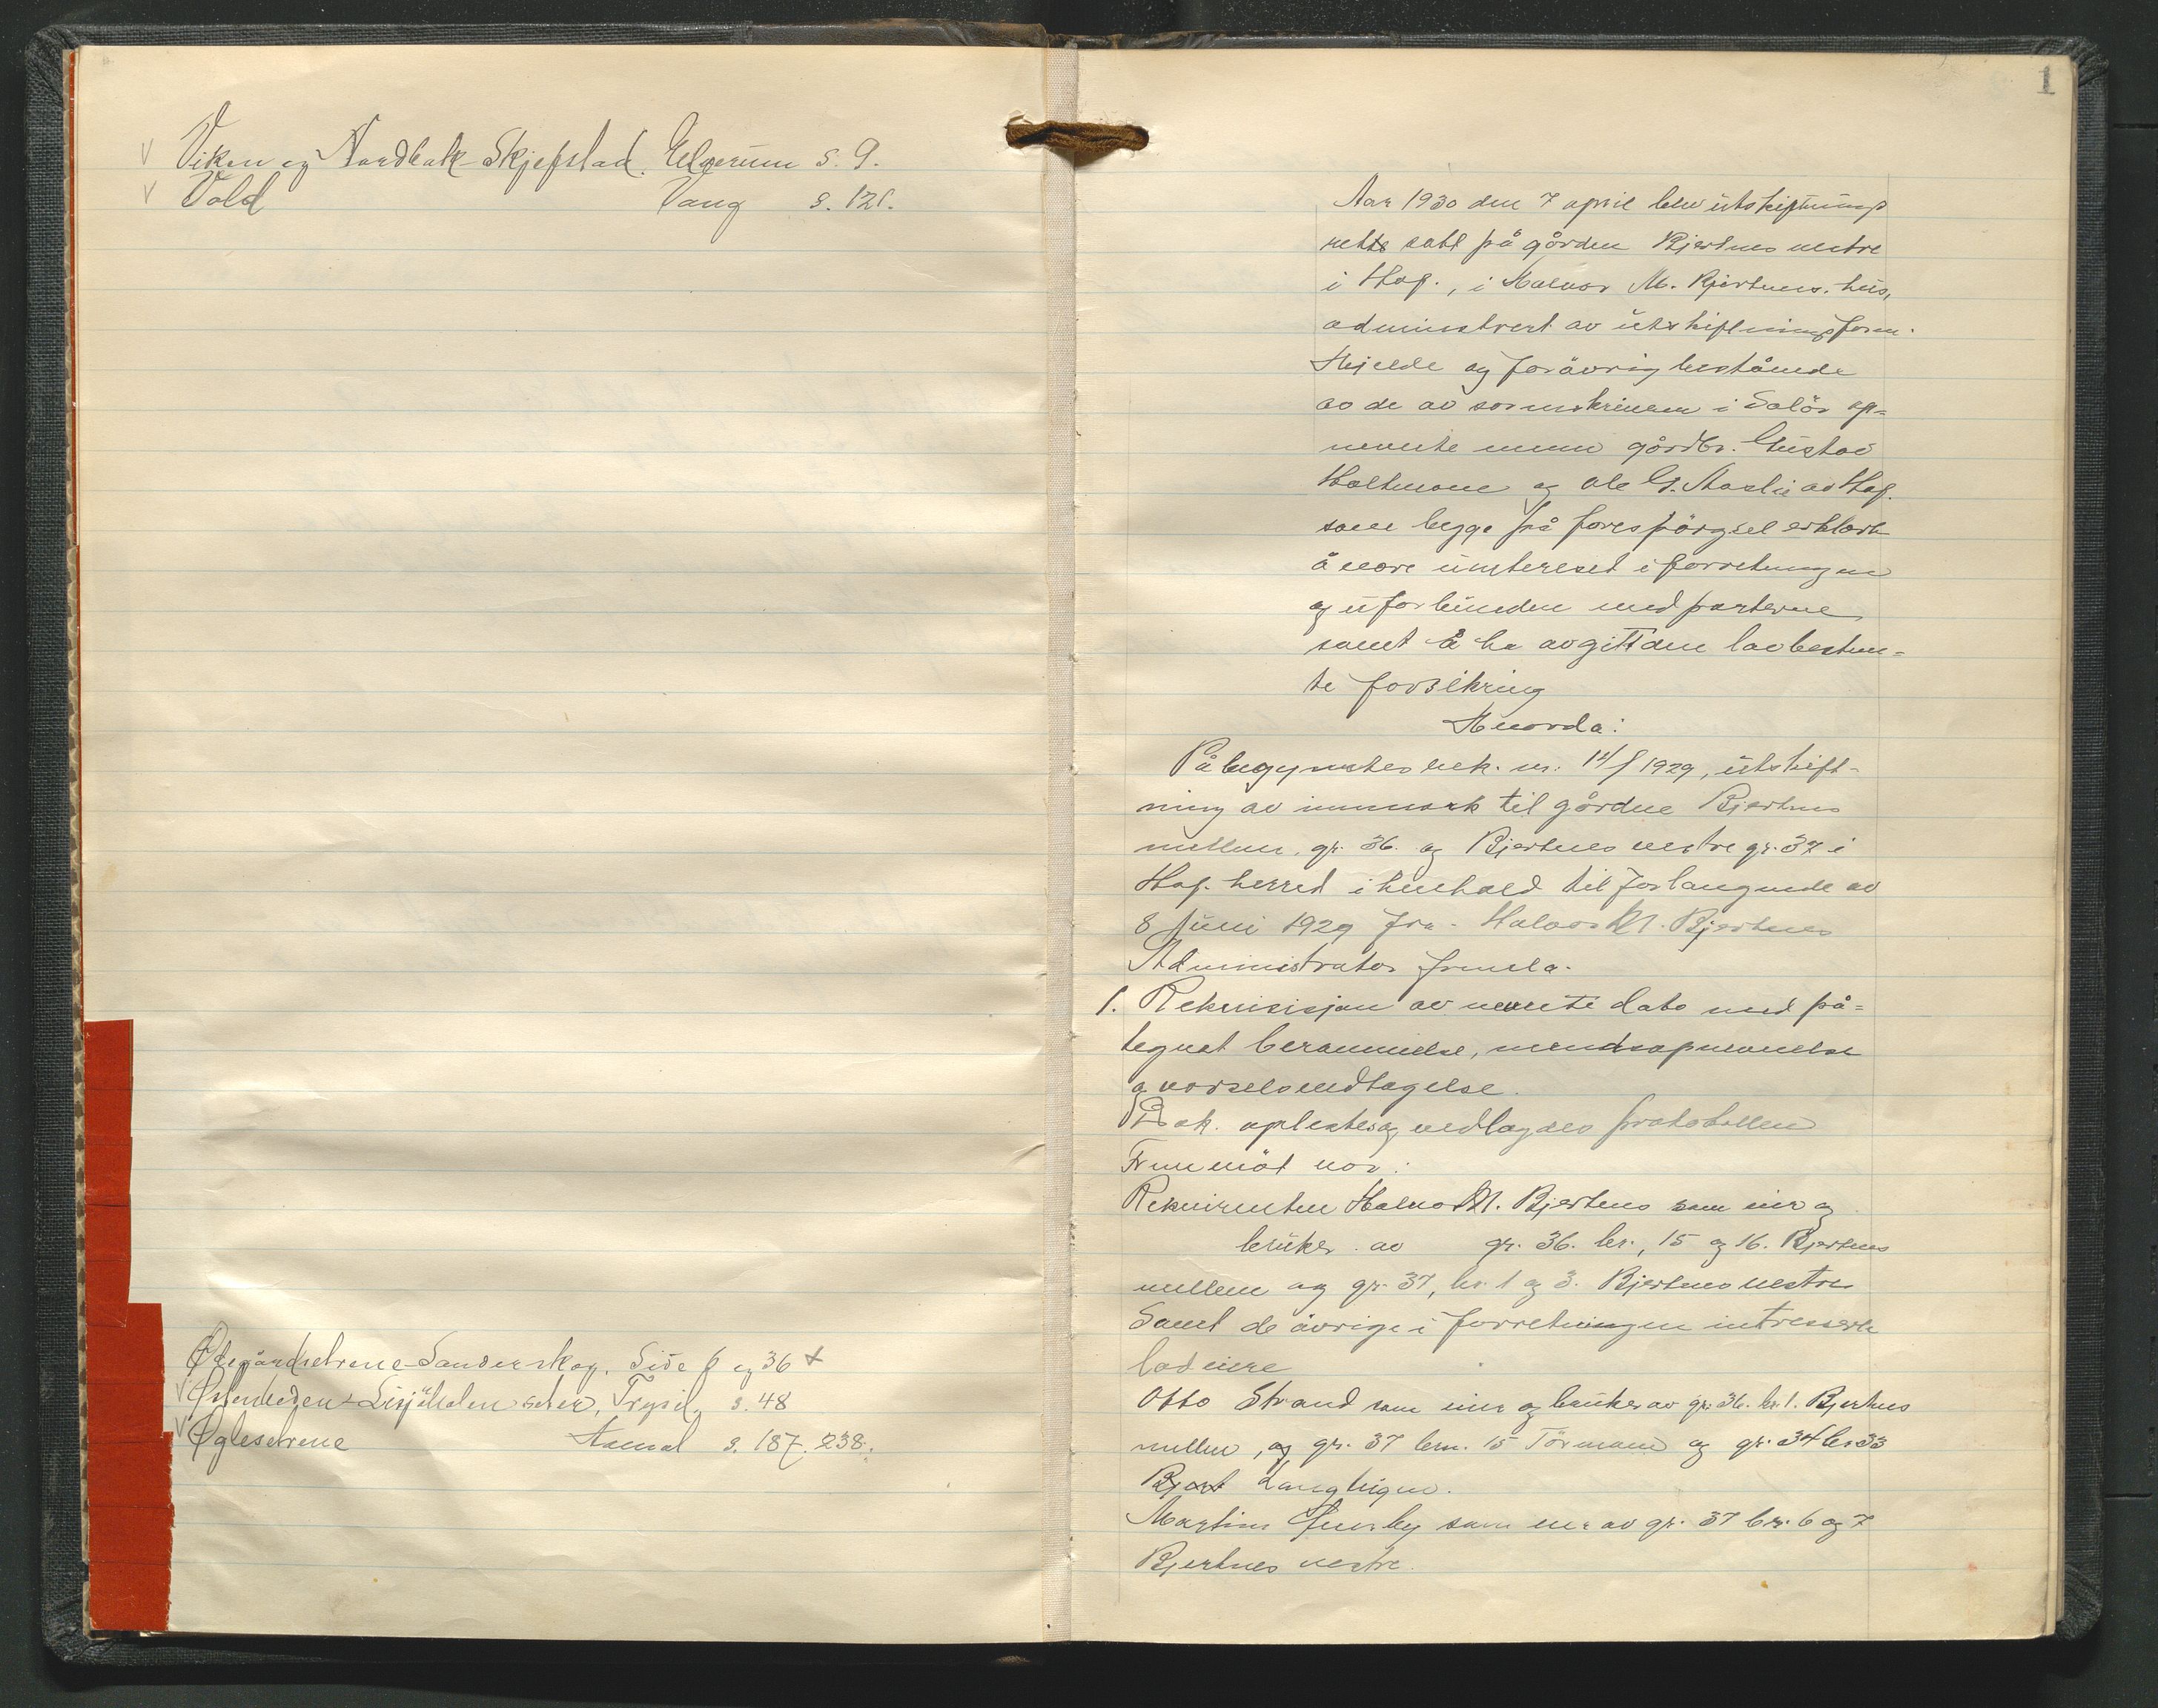 Viken og Nordbak-Skjefstad. Elverum s. 9.
Vold Vang s. 121.
Ødegårdsetrene-Sanderskog. Side 6 og 36 +
Østenheden + Lisjödalen seter, Trysil, s. 48
Øglesetrene Aamot s. 187. 238.
1
Aar 1930 den 7 april blev utskiftnings
rette satt på gården Bjertnes vestre
i Hof., i Halvor M. Bjertnes. hus,
administrert av utskiftningsform.
Hjelde og forövrig bestående
av de av sorenskriveren i Solör op-
nevnte menn gårdbr. Gustav
Holtmoen og Ole G. Aaslie av Hof.
som begge på forespörgsel erklærte
å være uinteresert i forretningen
og uforbunden med parterne
samt å ha avgitt den lovbestem-
te forsikring
Hvorda:
Påbegyntes sek. nr. 14/1929, utskift-
ning av innmark til gårdne Bjertnes
mellem, gr. 36. og Bjertnes vestre gr. 37 i
Hof. herred i henhold til forlangende av
8 Juni 1929 fra Halvor M. Bjertnes
Administrator fremla.
1. Rekvisisjon av nevnte dato med på-
tegnet berammelse, mendsopnevnelse
og varselsvedtagelse.
Dok. oplestes og vedlagdes protokollen
Fremmöt var:
Rekvirenten Halvor M. Bjertnes som eier og
bruker av gr. 36. br., 15 og 16. Bjertnes
mellem og gr. 37, br. 1 og 3. Bjertnes vestre
Samt de övrige i forretningen intresserte
lodeiere
Otto Strand som eier og bruker av gr. 36. br. 1. Bjertnes
mellem, og gr. 37 brn. 15 Törmoen og gr. 34 br 33
Langhign.
Martin som eier av gr. 37 br. 6 og 7
Bjertnes vestre.